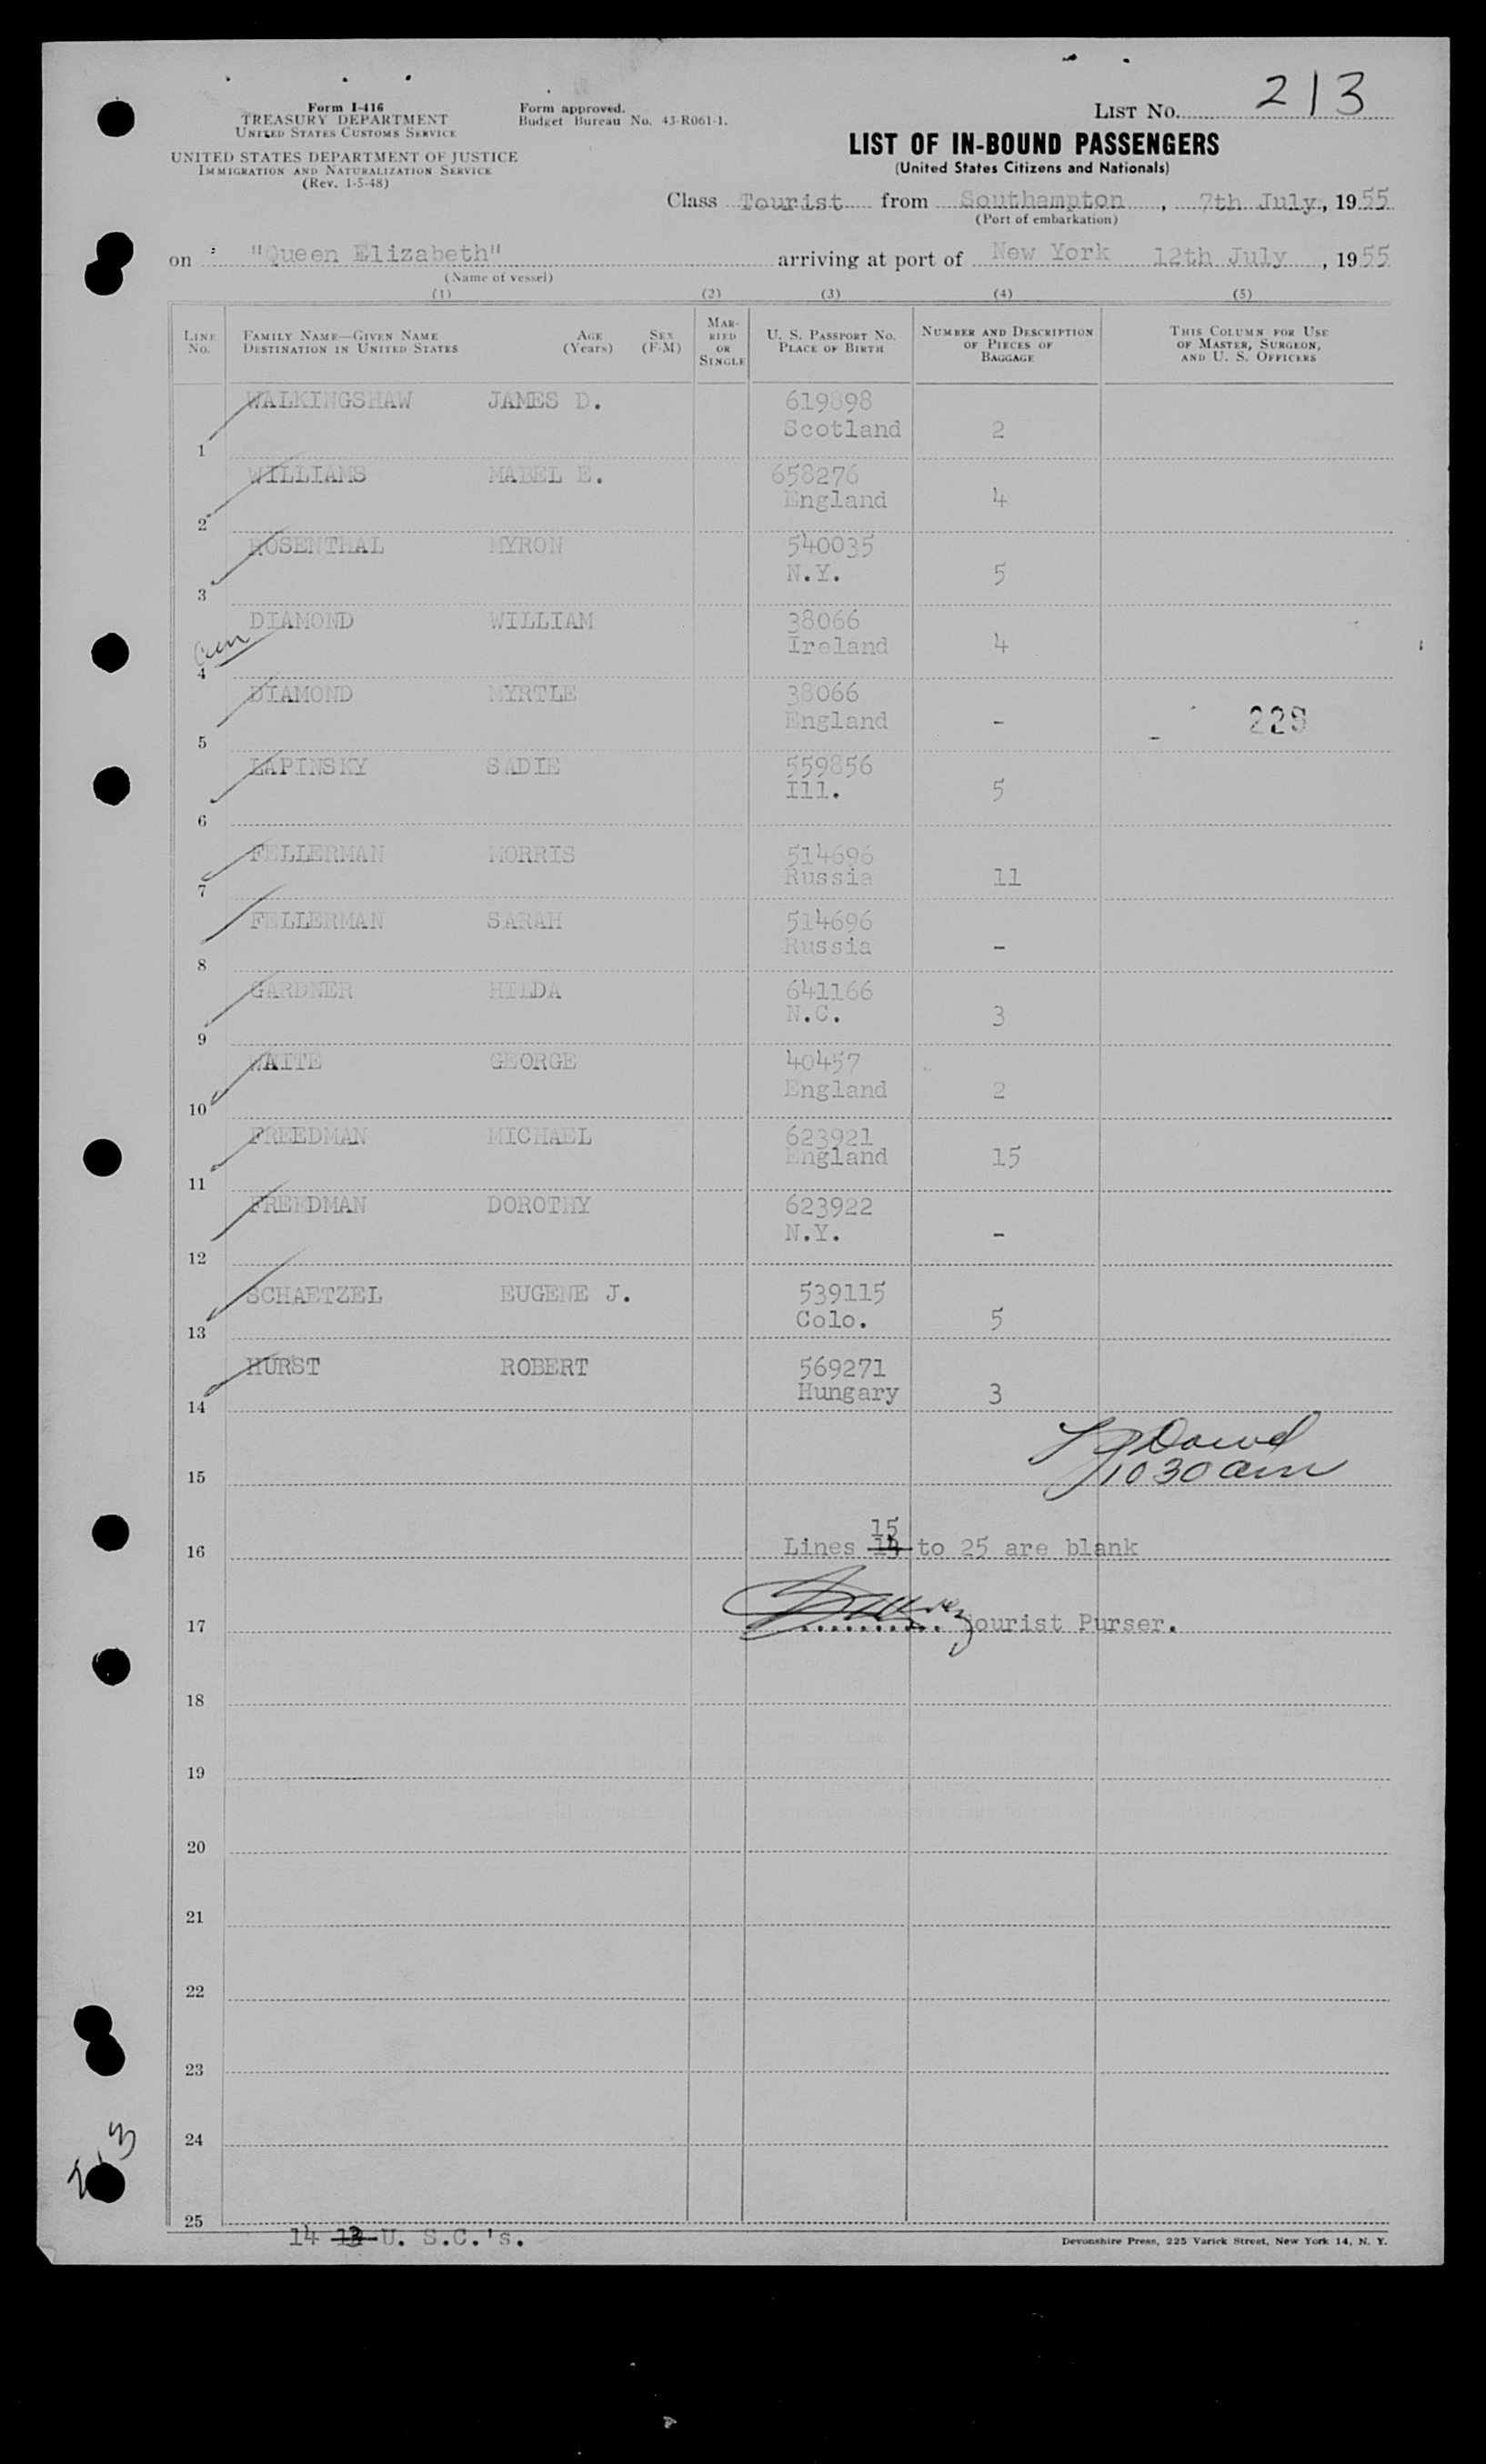 Form I-416
TREASURY DEPARTMENT
UNITED STATES CUSTOMS SERVICE
UNITED STATES DEPARTMENT OF JUSTICE
IMMIGRATION AND NATURALIZATION SERVICE
(Rev. 1-5-48)
Form approved.
Budget Bureau No. 43-R061-1.
LIST No. 213
LIST OF IN-BOUND PASSENGERS
(United States Citizens and Nationals)
Class Tourist from Southampton, 7th July, 1955
(Port of embarkation)
on "Queen Elizabeth" arriving at port of New York 12th July, 1955
(Name of vessel)
(1) (2) (3) (4) (5)
LINE No.
FAMILY NAME—GIVEN NAME
DESTINATION IN UNITED STATES
AGE (Years)
SEX (F-M)
MARRIED OR SINGLE
U. S. PASSPORT No.
PLACE OF BIRTH
NUMBER AND DESCRIPTION
OF PIECES OF
BAGGAGE
THIS COLUMN FOR USE
OF MASTER, SURGEON,
AND U. S. OFFICERS
WALKINGSHAW JAMES D. 619898
Scotland 2
1
WILLIAMS MABEL E. 658276
England 4
2
ROSENTHAL MYRON 540035
N.Y. 5
3
DIAMOND WILLIAM 38066
Ireland 4
4
DIAMOND MYRTLE 38066
England - 229
5
LAPINSKY SADIE 559856
Ill. 5
6
FELLERMAN MORRIS 514696
Russia 11
7
FELLERMAN SARAH 514696
Russia -
8
GARDNER HILDA 641166
N.C. 3
9
WAITE GEORGE 40457
England 2
10
FREEDMAN MICHAEL 623921
England 15
11
FREEDMAN DOROTHY 623922
N.Y. -
12
SCHAETZEL EUGENE J. 539115
Colo. 5
13
HURST ROBERT 569271
Hungary 3
14
Dowd
1030 am
15
15
Lines 14 to 25 are blank
16
17 .......... Tourist Purser.
18
19
20
21
22
23
24
25
213
14 13 U. S.C.'s.
Devonshire Press, 225 Varick Street, New York 14, N. Y.